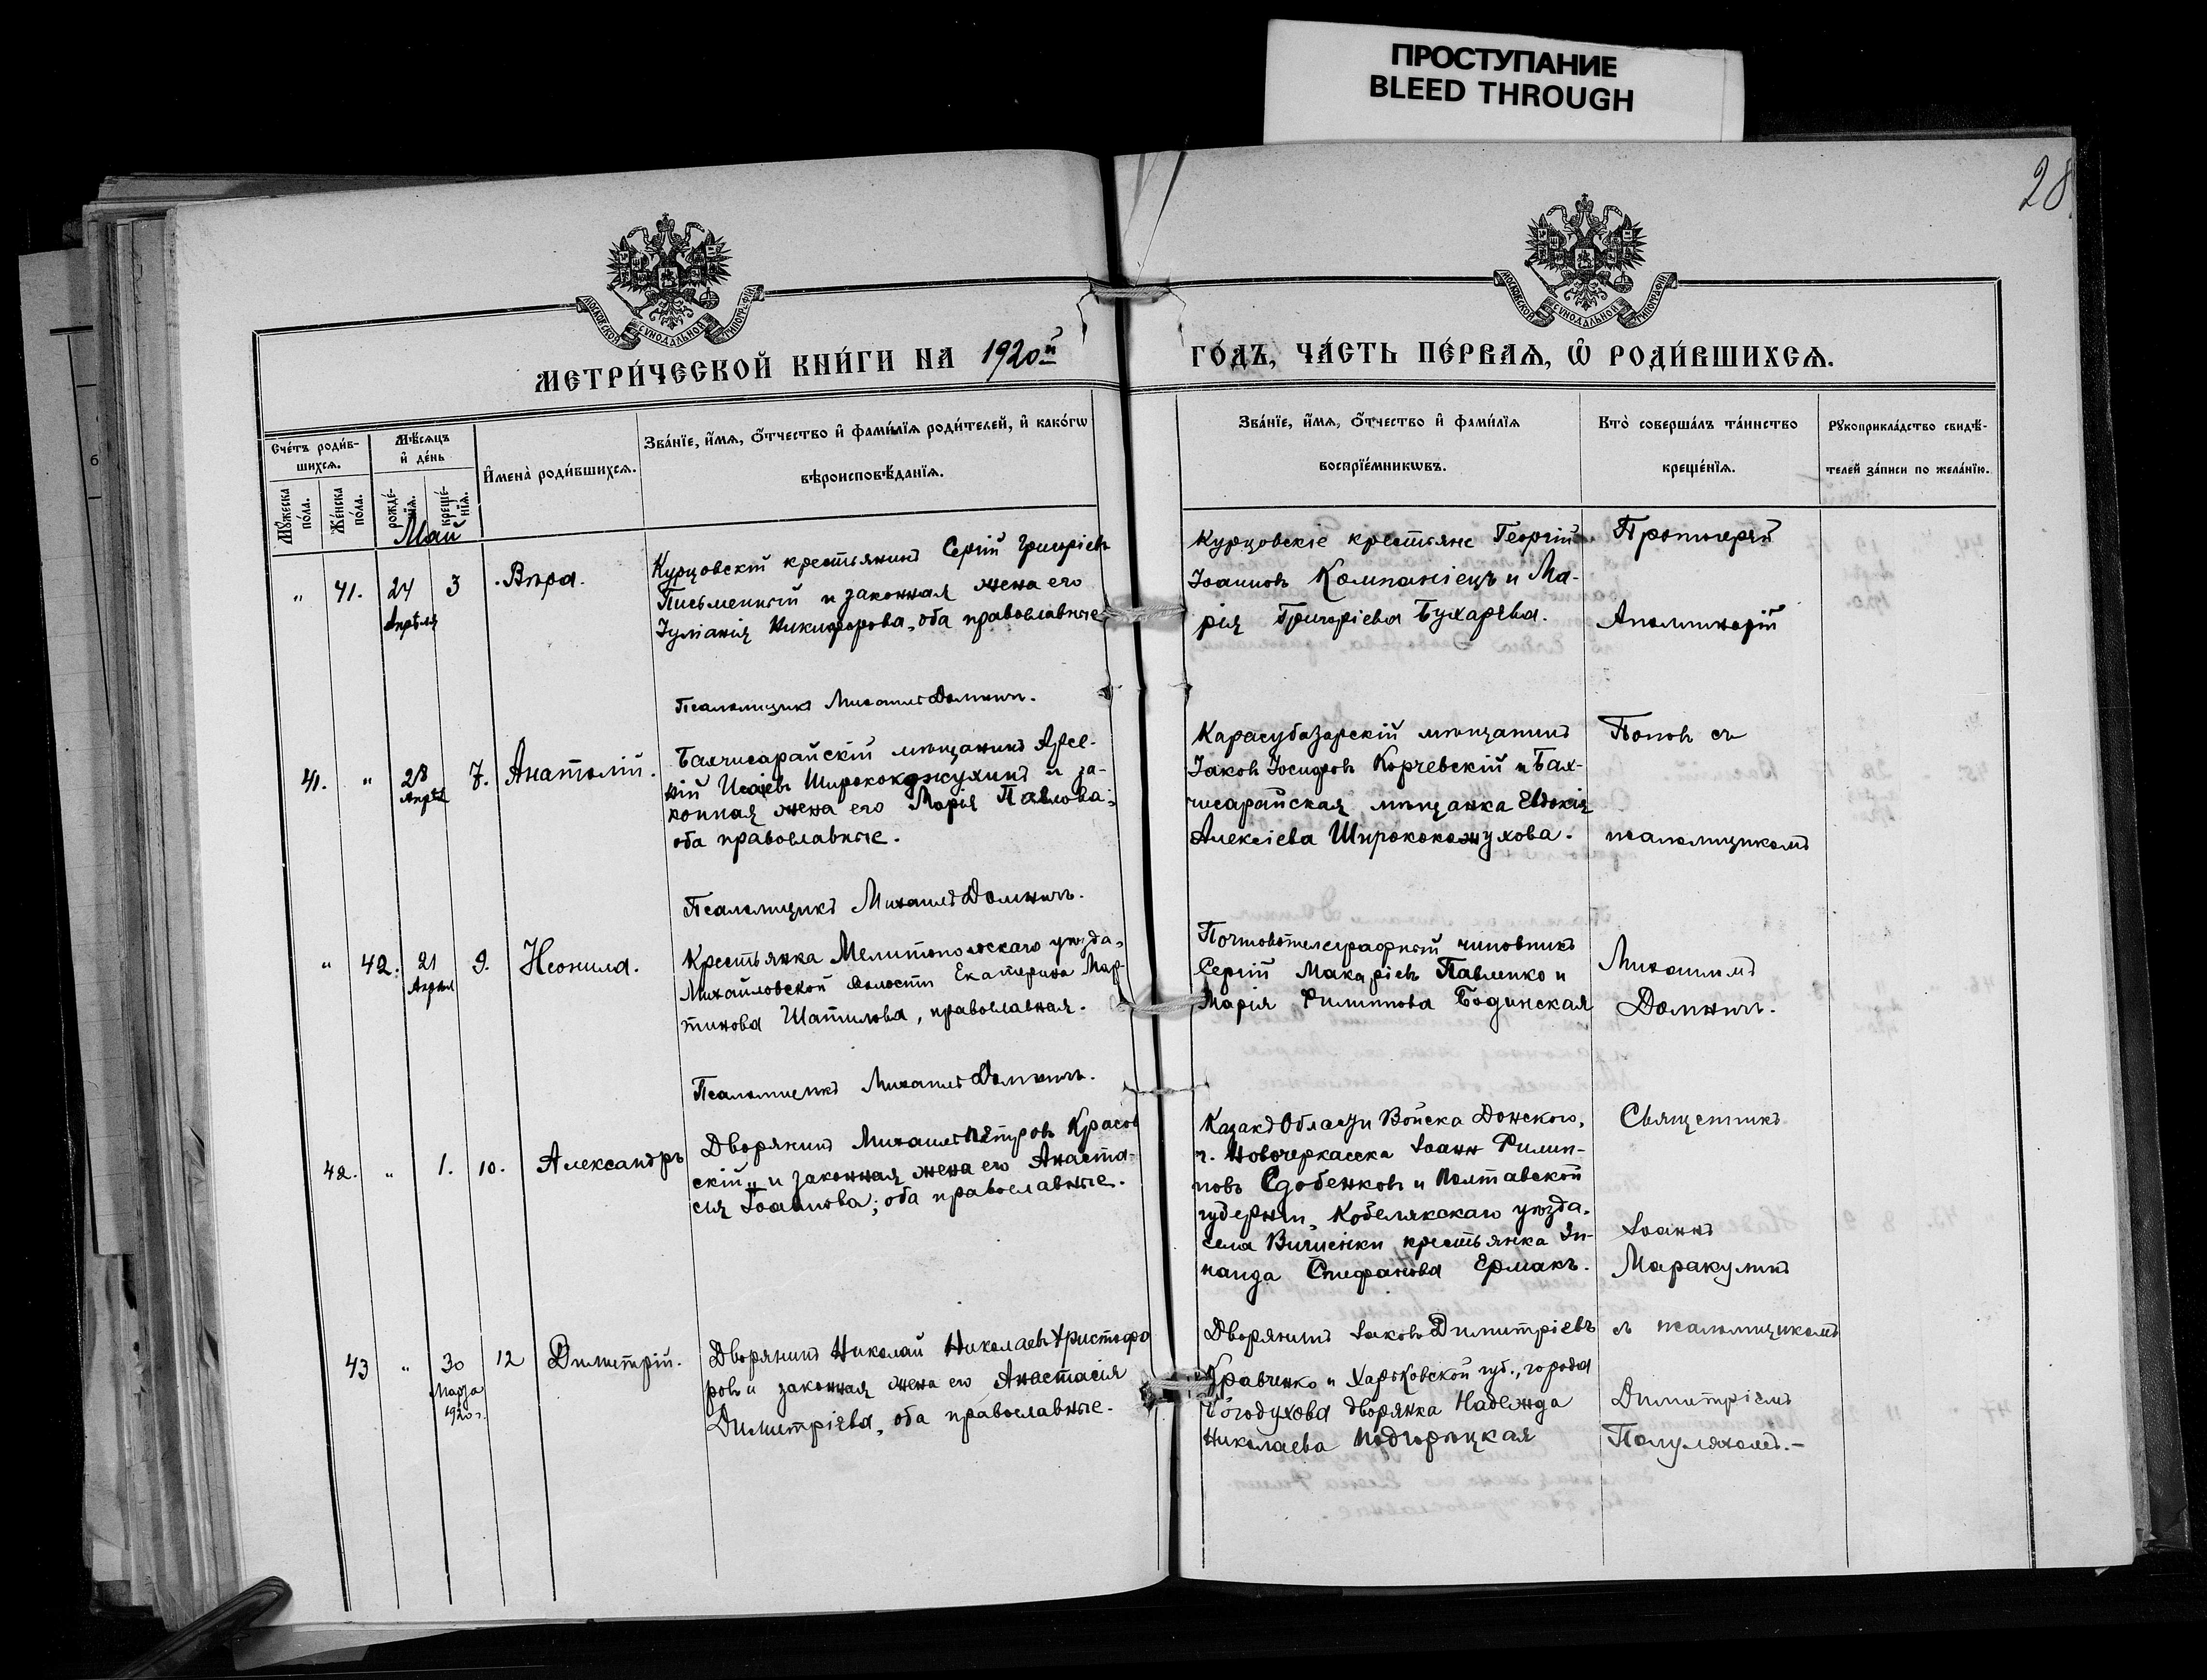 ПРОСТУПАНИЕ
BLEED THROUGH
28
МОСКОВСКОЙ СѴНОДАЛЬНОЙ ТИПОГРАФІИ
МОСКОВСКОЙ СѴНОДАЛЬНОЙ ТИПОГРАФІИ
МЕТРИ́ЧЕСКОЙ КНИ́ГИ НА 1920й
ГО́ДЪ, ЧА́СТЬ ПЕ́РВАѦ, Ѡ҆ РОДИ́ВШИХСѦ.
Сче́тъ роди́в-
шихсѧ.
Мꙋ́жеска
по́ла.
Же́нска
по́ла.
Мѣ́сѧцъ
и҆ де́нь
рожде́-
нїѧ.
креще́-
нїѧ.
И҆мена̀ роди́вшихсѧ.
Зва́нїе, и҆́мѧ, ѻ҆́тчество и҆ фамѝлїѧ роди́телей, и҆ како́гѡ
вѣроисповѣ́данїѧ.
Зва́нїе, и҆́мѧ, ѻ҆́тчество и҆ фами́лїѧ
воспрїе́мникѡвъ.
Кто̀ соверша́лъ та́инство
креще́нїѧ.
Рꙋкоприкла́дство свидѣ́-
телей за́писи по жела́нїю.
Май
" 41. 24 3 Вѣра.
Апрѣля
Курцовскій крестьянинъ Сергій Григоріевъ
Письменный и законная жена его
Іуліанія Никифорова, оба православные
Псаломщикъ Михаилъ Домничъ.
Курцовскіе крестьяне Георгій
Іоанновъ Компаніецъ и Ма-
рія Григоріева Бухарева.
Протоіерей
Аполинарій
41. " 28 7. Анатолій.
Апрѣля
Бахчисарайскій мѣщанинъ Арсе-
ній Исаіевъ Ширококожухинъ и за-
конная жена его Марія Павлова;
оба православные.
Псаломщикъ Михаилъ Домничъ.
Карасубазарскій мѣщанинъ
Іаковъ Іосифовъ Корчевскій и Бах-
чисарайская мѣщанка Евдокія
Алексіева Ширококожухова.
Поповъ съ
псаломщикомъ
" 42. 21 9. Неонила.
Крестьянка Мелитопольскаго уѣзда,
Михайловской волости Екатерина Мар-
тинова Шатилова, православная.
Псаломщикъ Михаилъ Домничъ.
Почтовотелеграфный чиновникъ
Сергій Макаріевъ Павленко и
Марія Филиппова Бодинская
Михаиломъ
Домничъ.
42. " 1. 10. Александръ
Дворянинъ Михаилъ Петровъ Красов
скій и законная жена его Анаста-
сія Іоаннова; оба православные.
Казакъ Области Войска Донского,
г. Новочеркасска Іоаннъ Филип-
повъ Сдобенковъ и Полтавской
губерніи, Кобелякскаго уѣзда.
села крестьянка Зи-
наида Стефанова Ермакъ.
Священникъ
Іоаннъ
Маракулинъ
43 " 30 12 Димитрій.
Марта
1920 г.
Дворянинъ Николай Николаевъ Христофо
ровъ и законная жена его Анастасія
Димитріева, оба православные.
Дворянинъ Іаковъ Димитріевъ
Кравченко и Харьковской губ., города
Богодухова дворянка Надежда
Николаева Подгорецкая
съ псаломщикомъ
Димитріемъ
Полуляхомъ.-